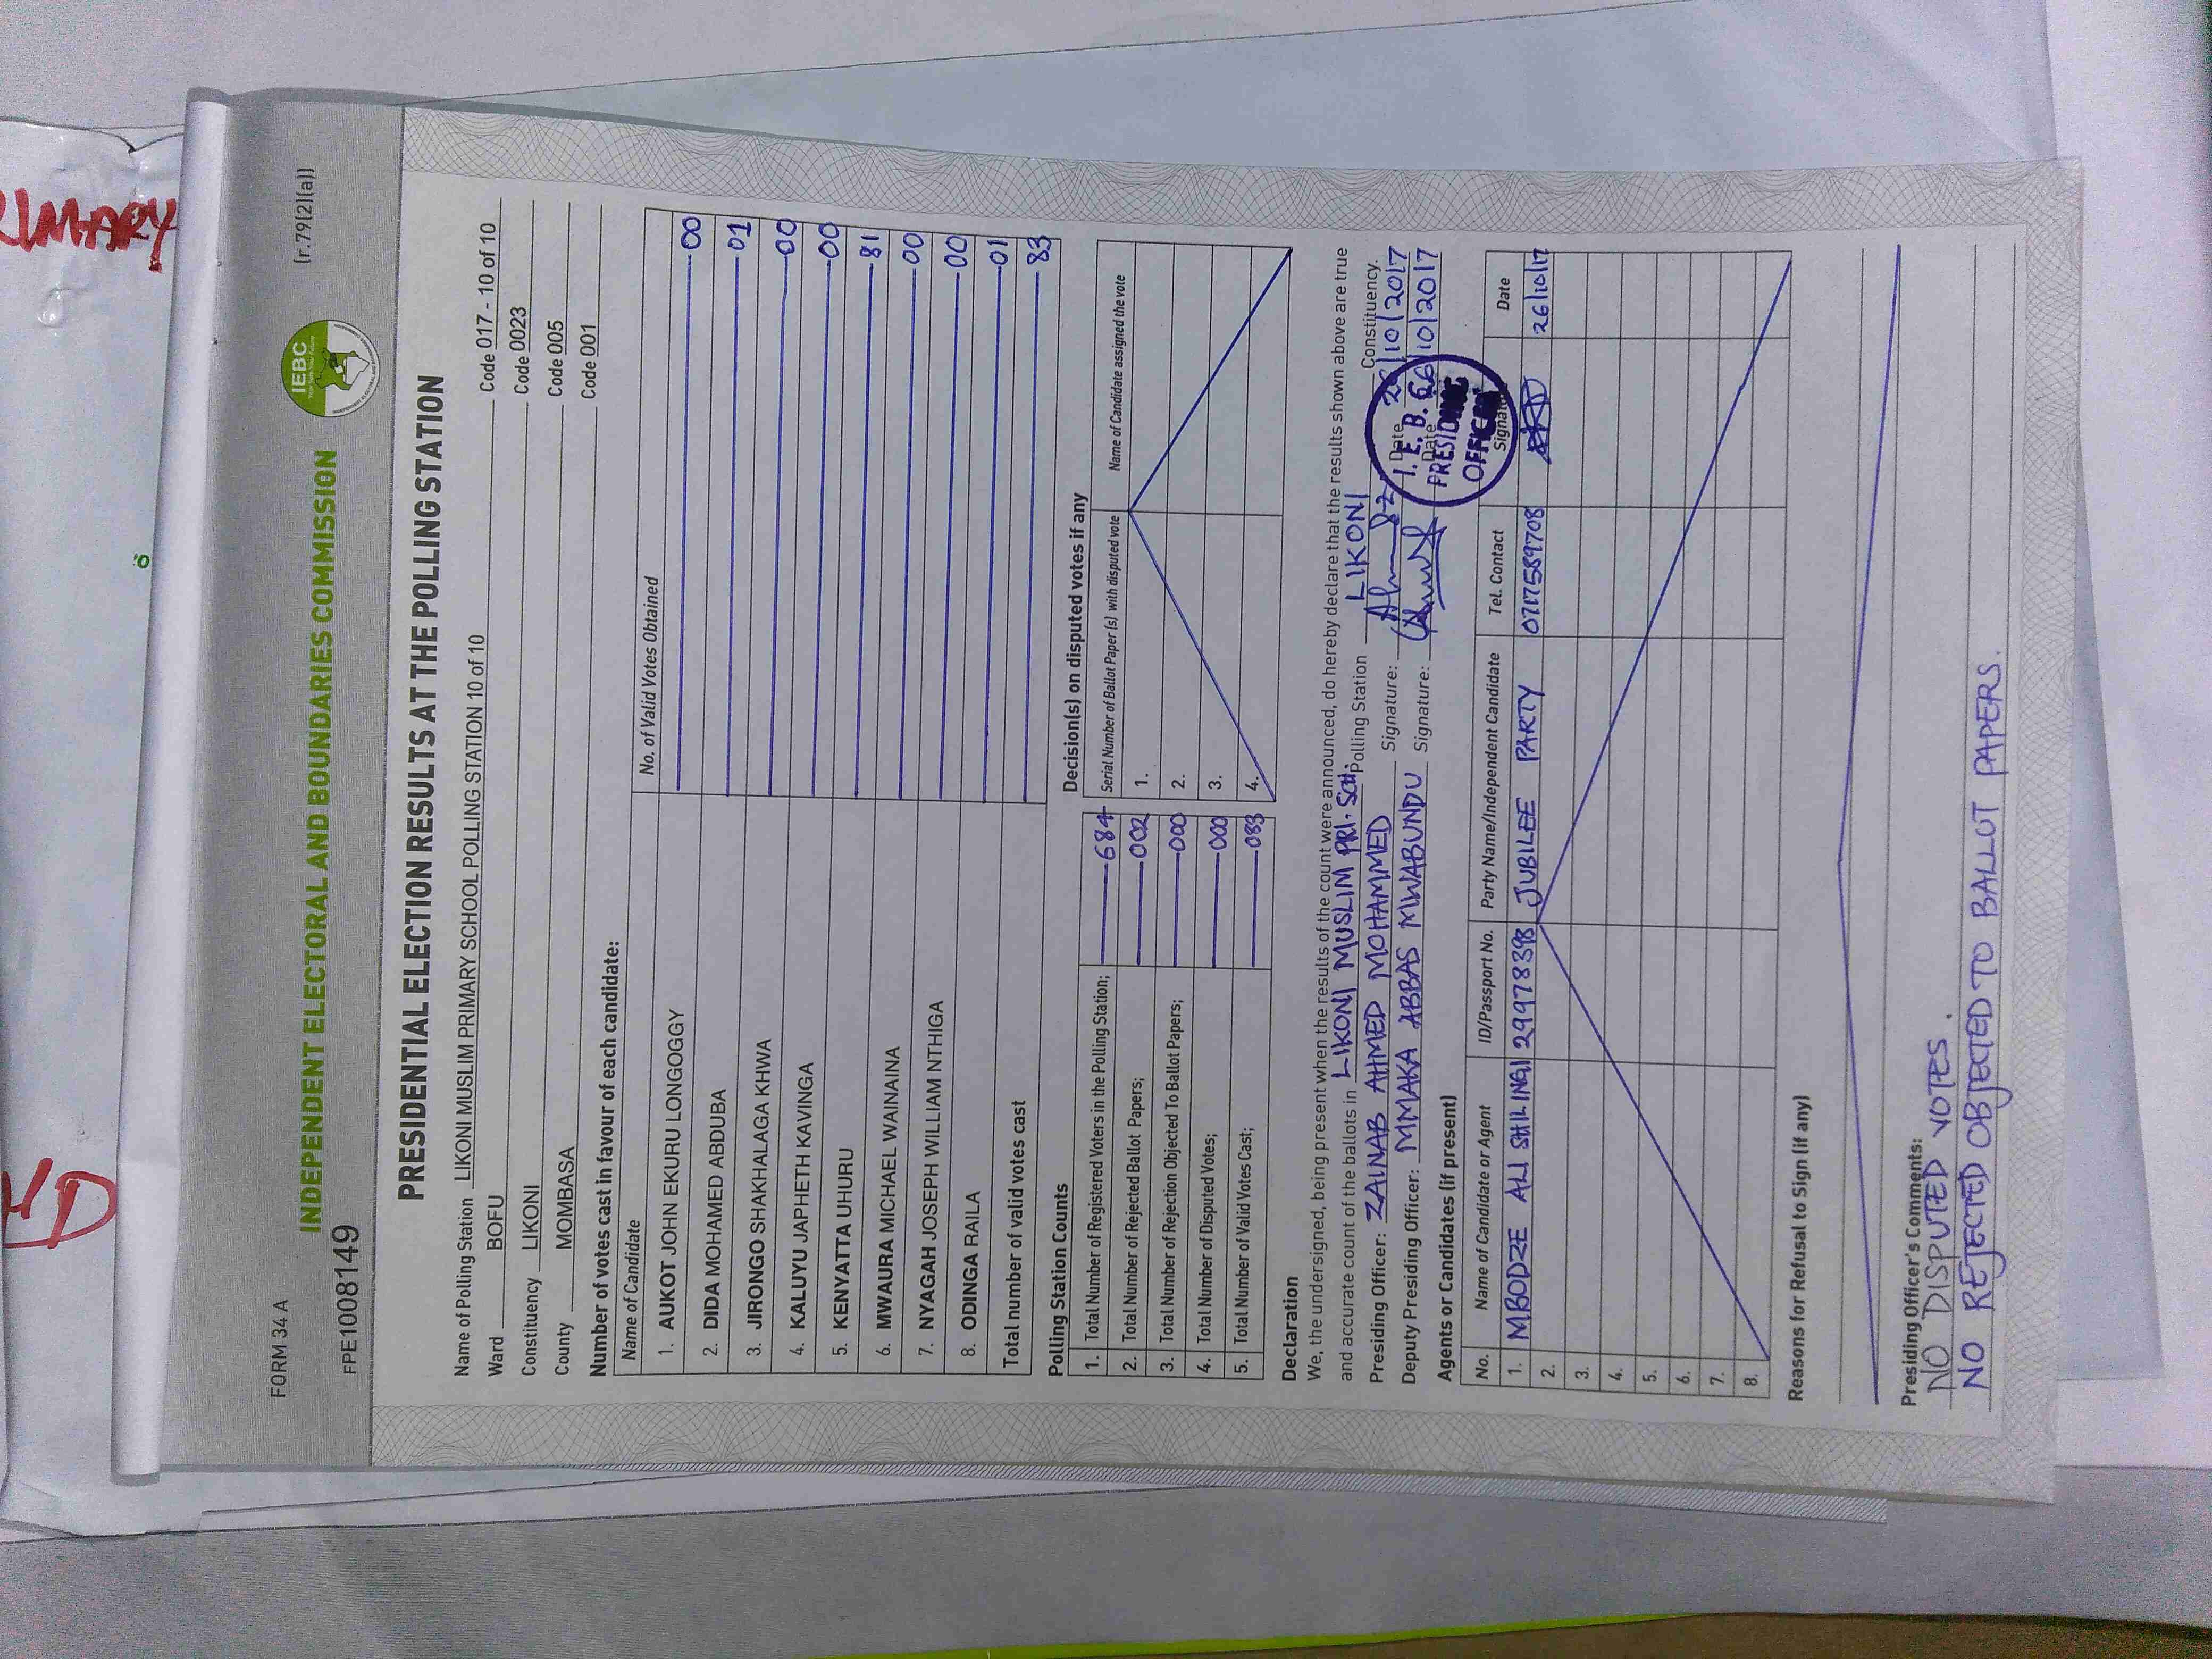 RIMARY
FORM 34 A
(r.79(2)(a))
IEBC
INDEPENDENT ELECTORAL AND BOUNDARIES COMMISSION
FPE1008149
PRESIDENTIAL ELECTION RESULTS AT THE POLLING STATION
Name of Polling Station LIKONI MUSLIM PRIMARY SCHOOL POLLING STATION 10 of 10 Code 017 - 10 of 10
Ward BOFU Code 0023
Constituency LIKONI Code 005
County MOMBASA Code 001
Number of votes cast in favour of each candidate:
Name of Candidate No. of Valid Votes Obtained
1. AUKOT JOHN EKURU LONGOGGY 00
2. DIDA MOHAMED ABDUBA 01
3. JIRONGO SHAKHALAGA KHWA 00
4. KALUYU JAPHETH KAVINGA 00
5. KENYATTA UHURU 81
6. MWAURA MICHAEL WAINAINA 00
7. NYAGAH JOSEPH WILLIAM NTHIGA 00
8. ODINGA RAILA 01
Total number of valid votes cast 83
Polling Station Counts
1. Total Number of Registered Voters in the Polling Station; 684
2. Total Number of Rejected Ballot Papers; 002
3. Total Number of Rejection Objected To Ballot Papers; 000
4. Total Number of Disputed Votes; 000
5. Total Number of Valid Votes Cast; 083
Decision(s) on disputed votes if any
Serial Number of Ballot Paper (s) with disputed vote Name of Candidate assigned the vote
1.
2.
3.
4.
Declaration
We, the undersigned, being present when the results of the count were announced, do hereby declare that the results shown above are true
and accurate count of the ballots in LIKONI MUSLIM PRI. SCH. Polling Station LIKONI Constituency.
Presiding Officer: ZAINAB AHMED MOHAMMED Signature: Date 26/10/2017
Deputy Presiding Officer: MMAKA ABBAS MWABUNDU Signature: Date 26/10/2017
I. E. B. C.
PRESIDING
OFFICER
Agents or Candidates (if present)
No. Name of Candidate or Agent ID/Passport No. Party Name/Independent Candidate Tel. Contact Signature Date
1. MBODZE ALI SHILINGI 29978398 JUBILEE PARTY 0717589708 26/10/17
2.
3.
4.
5.
6.
7.
8.
Reasons for Refusal to Sign (if any)
Presiding Officer's Comments:
NO DISPUTED VOTES.
NO REJECTED OBJECTED TO BALLOT PAPERS.